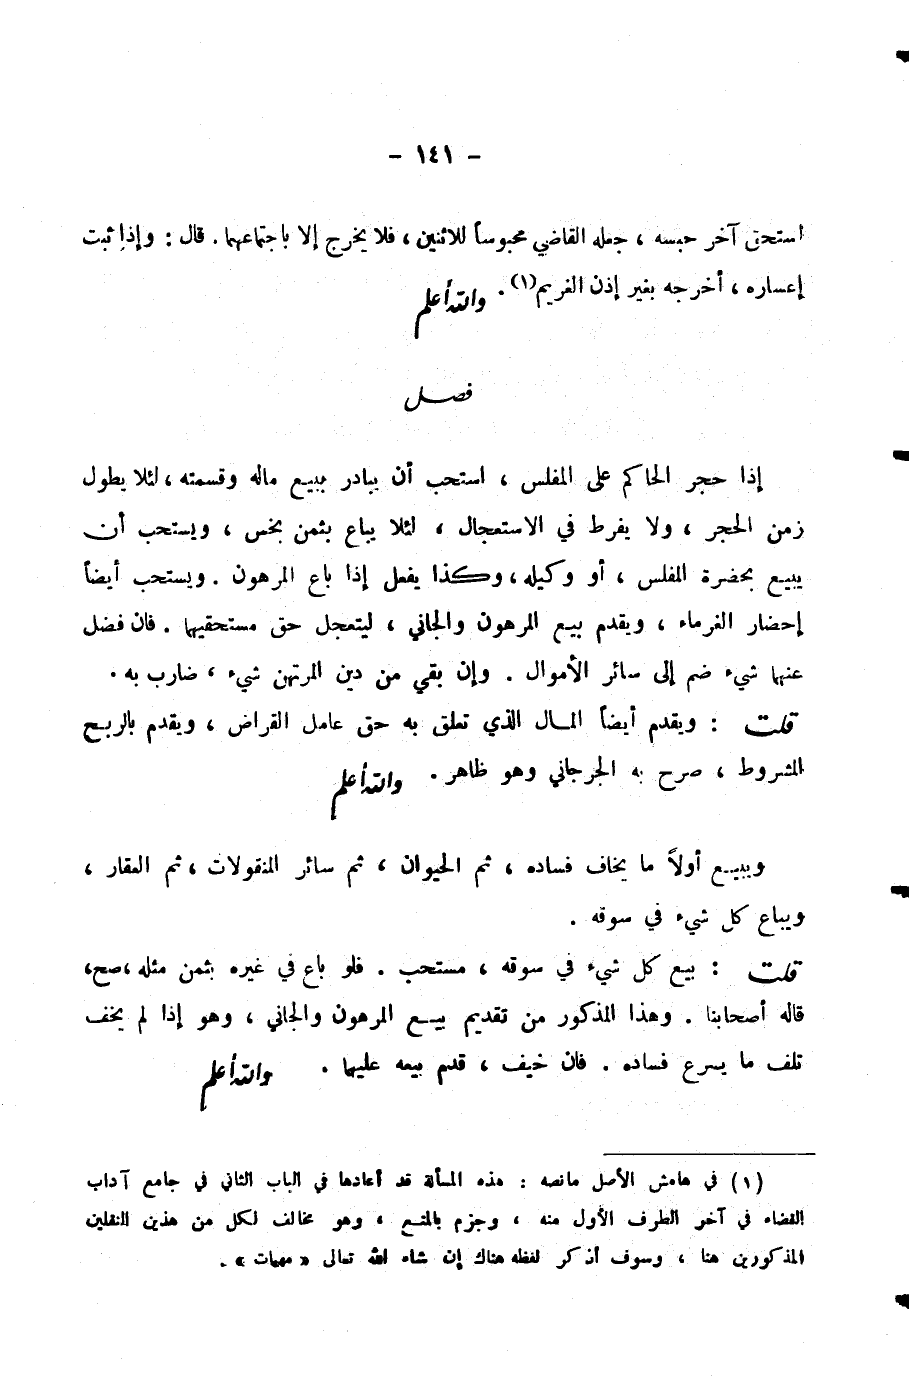 - ١٤١ -
استحق آخر حبسه ، جعله القاضي محبوساً للاثنين ، فلا يخرج إلا باجتماعهما . قال : وإذا ثبت
إعساره ، أخرجه بغير إذن الغريم(١) . والله أعلم
فصل
إذا حجر الحاكم على المفلس ، استحب أن يبادر ببيع ماله وقسمته ، لئلا يطول
زمن الحجر ، ولا يفرط في الاستعجال ، لئلا يباع بثمن بخس ، ويستحب أن
يبيع بحضرة المفلس ، أو وكيله ، وكذا يفعل إذا باع المرهون . ويستحب أيضاً
إحضار الغرماء ، ويقدم بيع المرهون والجاني ، ليتعجل حق مستحقيها . فان فضل
عنها شيء ضم إلى سائر الأموال . وإن بقي من دين المرتهن شيء ، ضارب به .
قلت : ويقدم أيضاً المال الذي تعلق به حق عامل القراض ، ويقدم بالربح
المشروط ، صرح به الجرجاني وهو ظاهر . والله أعلم
ويبيع أولاً ما يخاف فساده ، ثم الحيوان ، ثم سائر المنقولات ، ثم العقار ،
ويباع كل شيء في سوقه .
قلت : بيع كل شيء في سوقه ، مستحب . فلو باع في غيره بثمن مثله ،صح،
قاله أصحابنا . وهذا المذكور من تقديم بيع المرهون والجاني ، وهو إذا لم يخف
تلف ما يسرع فساده . فان خيف ، قدم بيعه عليها . والله أعلم
(١) في هامش الأصل مانصه : هذه المسألة قد أعادها في الباب الثاني في جامع آداب
القضاء في آخر الطرف الأول منه ، وجزم بالمنع ، وهو مخالف لكل من هذين النقلين
المذكورين هنا ، وسوف أذكر لفظه هناك إن شاء الله تعالى « مهمات » .